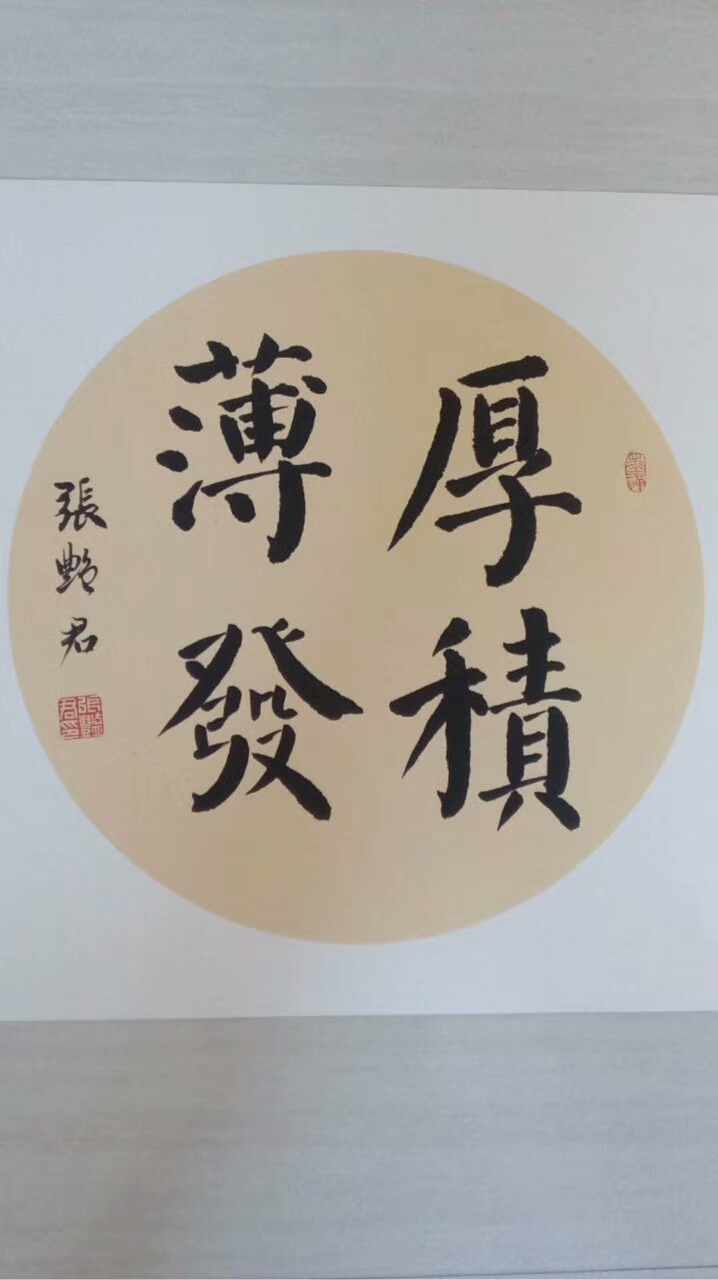 厚積
薄發
張艷君